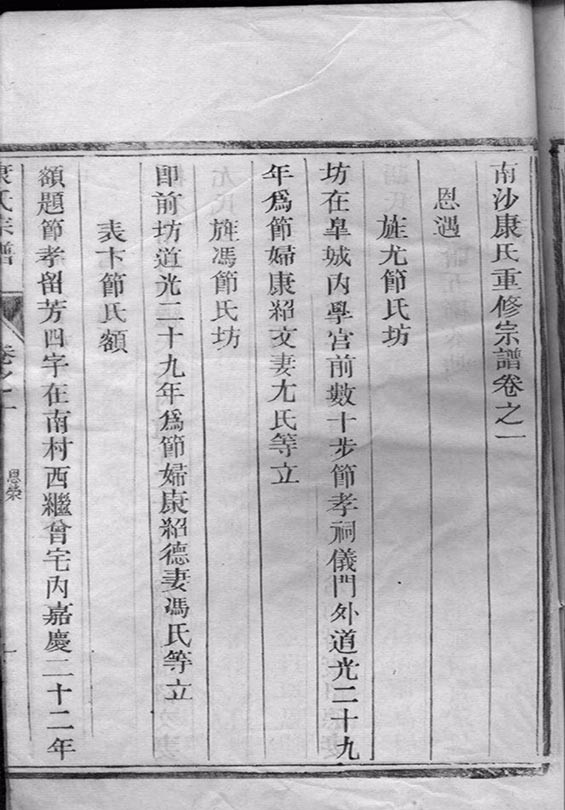 南沙康氏重修宗譜卷之一
恩遇
旌尤節氏坊
坊在阜城內學宮前數十步節孝祠儀門外道光二十九
年爲節婦康紹文妻尤氏等立
旌馮節氏坊
即前坊道光二十九年爲節婦康紹德妻馮氏等立
表卞節氏額
額題節孝留芳四字在南村西繼曾宅內嘉慶二十二年
康氏宗譜
卷之一
恩榮
一